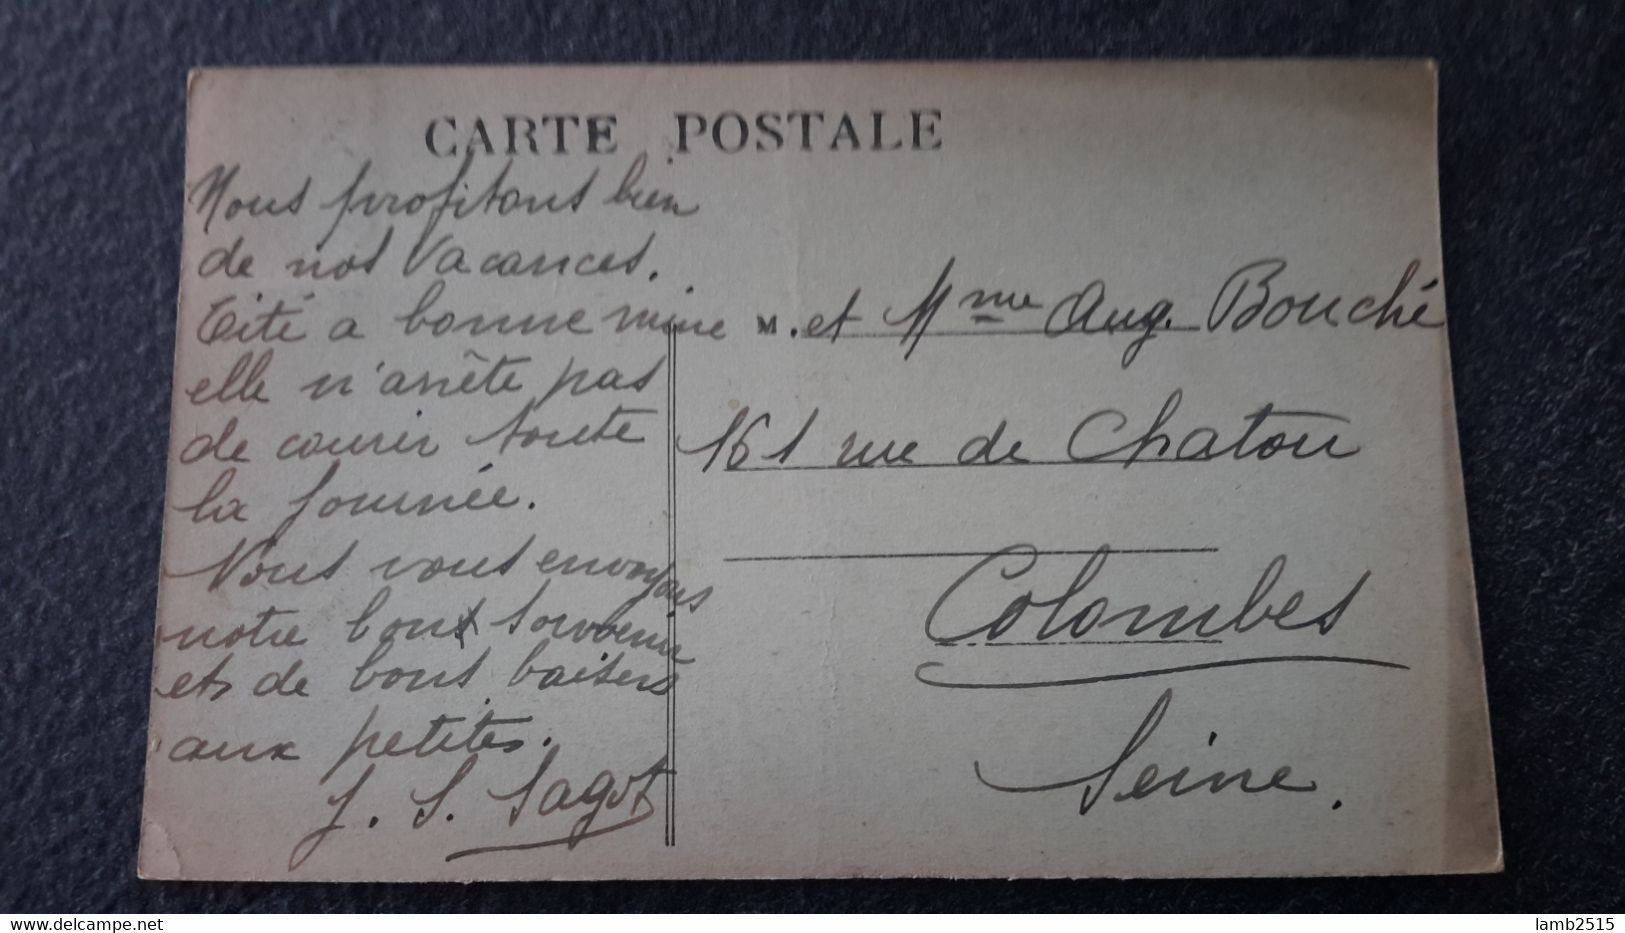 CARTE POSTALE
Nous profitons bien
de nos Vacances.
Titi a bonne mine
elle n'arrête pas
de courir toute
la journée.
Nous vous envoyons
notre bon souvenir
et de bons baisers
aux petites.
J. S. Sagot
M. et Mme Aug. Bouché
161 rue de Chatou
Colombes
Seine.
www.delcampe.net
lamb2515